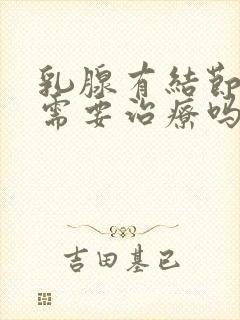 乳腺有結節
需要治療嗎
吉田基已